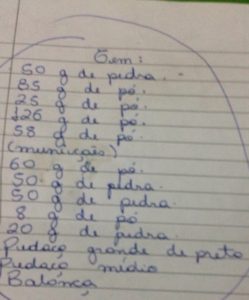 Tem:
50 g de pedra.
85 g de pó.
25 g de pó.
126 g de pó.
58 g de pó.
(munição)
60 g de pó.
50 g de pedra.
50 g de pedra.
8 g de pó
20 g de pedra.
Pedaço grande de preto
Pedaço médio
Balança